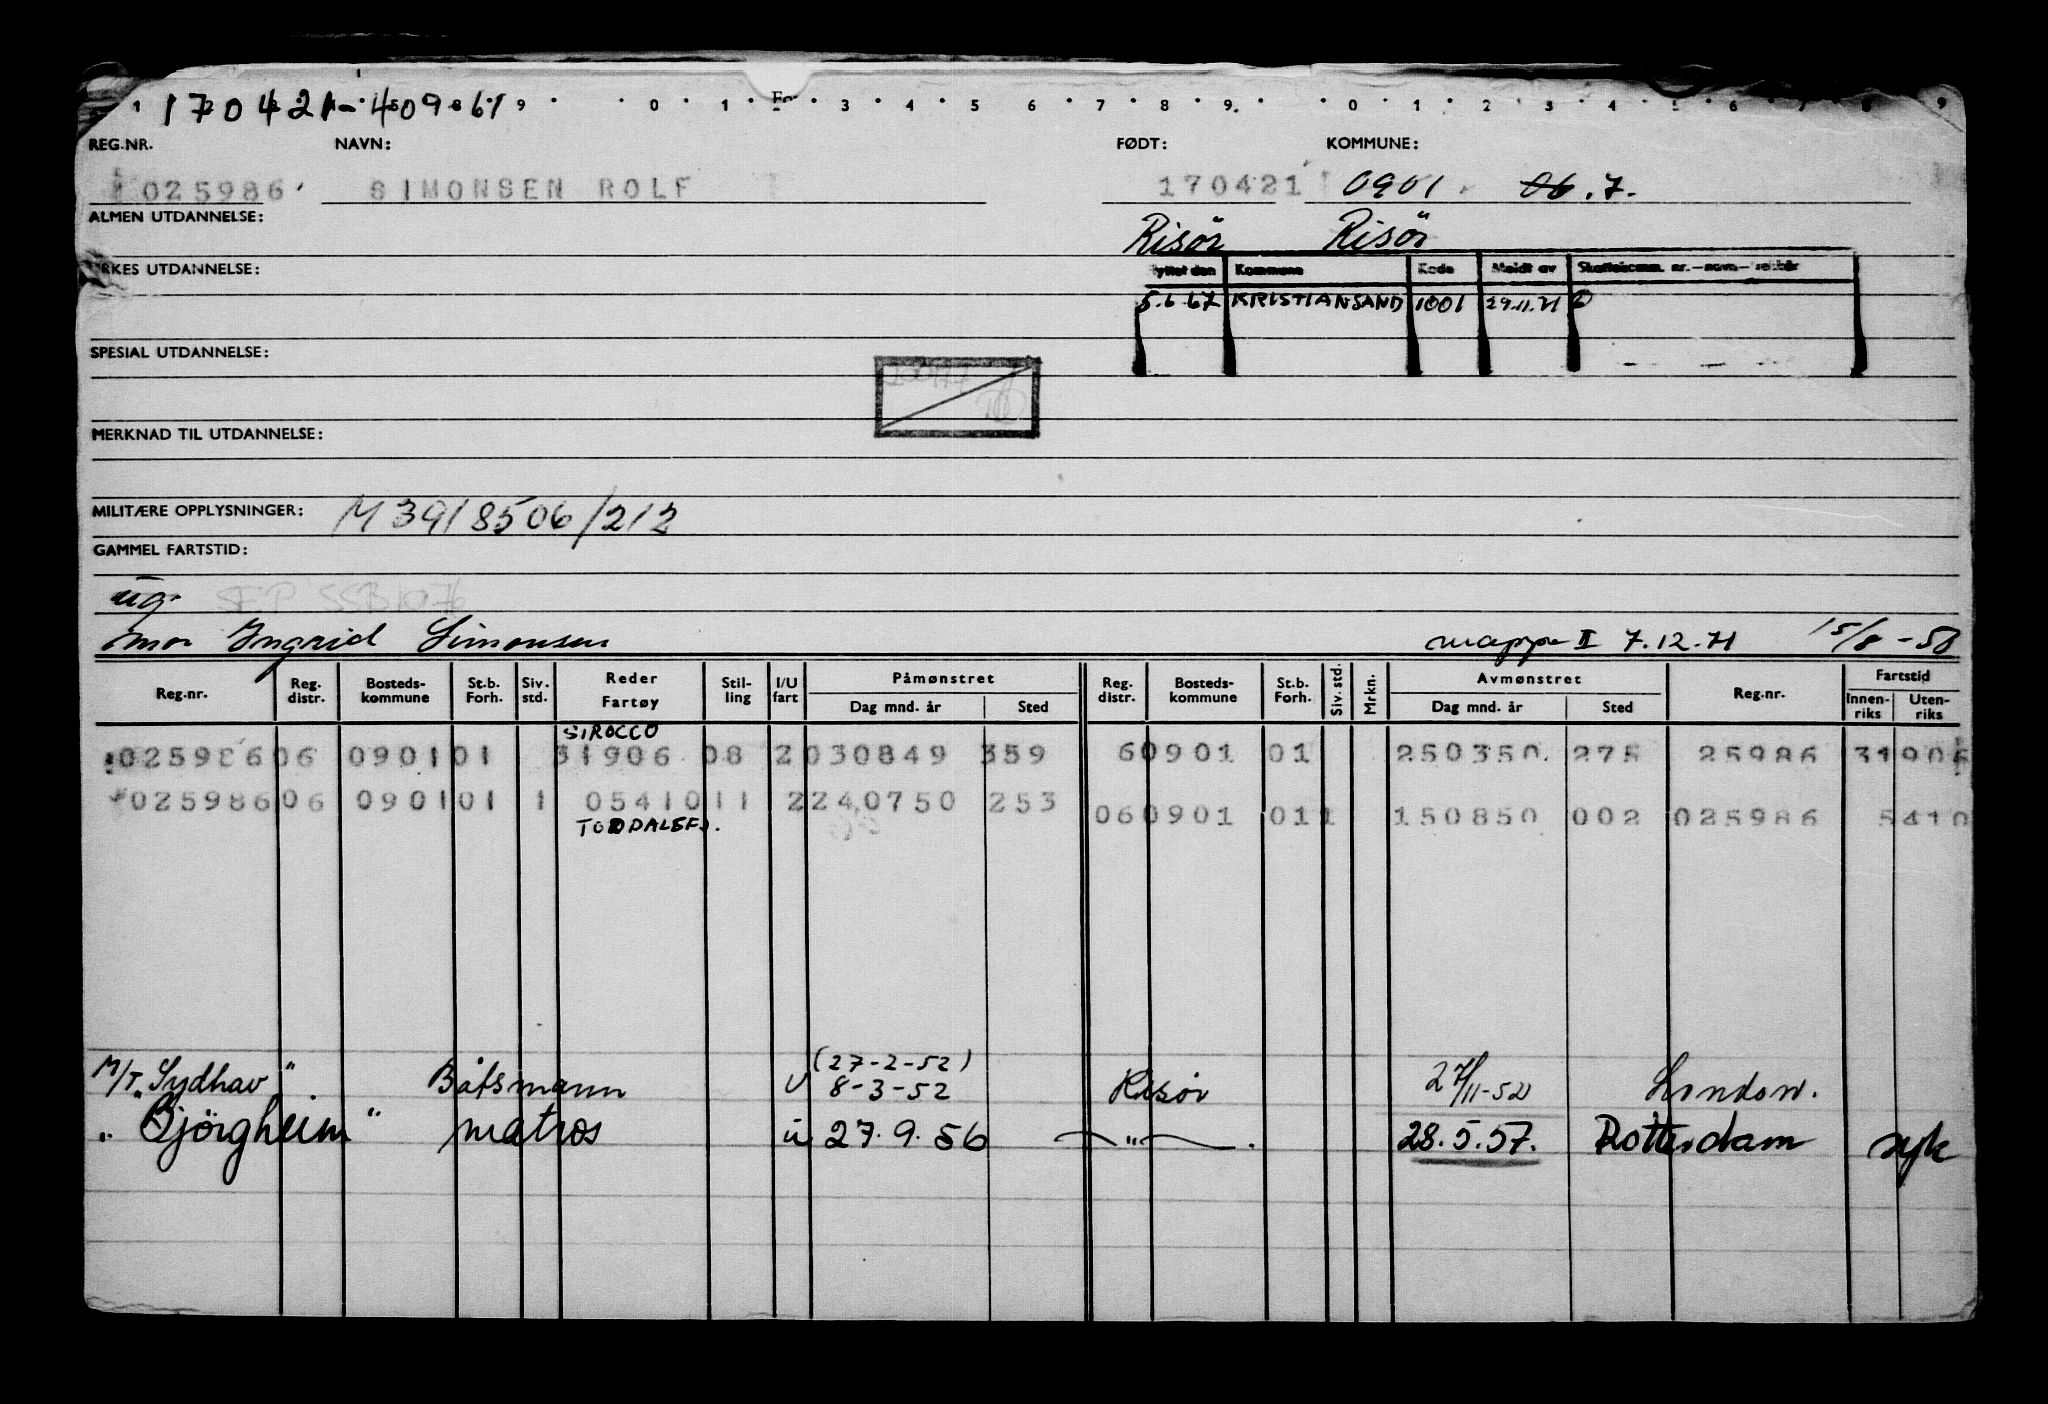 170421-40961
REG.NR. NAVN: FØDT: KOMMUNE:
025986 SIMONSEN ROLF 170421 0901 06.7.
ALMEN UTDANNELSE: Risör Risör
YRKES UTDANNELSE: Flyttet den Kommune Kode Meldt av
5.6.67 KRISTIANSAND 1001 29.11.71
SPESIAL UTDANNELSE:
MERKNAD TIL UTDANNELSE:
MILITÆRE OPPLYSNINGER: M 3918506/212
GAMMEL FARTSTID:
ug.
mor Ingrid Simonsen mappe II 7.12.71 15/8-58
Reg.nr. Reg. distr. Bosteds-kommune St.b. Forh. Siv. std. Reder Fartøy Stil-ling I/U fart Påmønstret Reg. distr. Bosteds-kommune St.b. Forh. Siv. std. Mrkn. Avmønstret Reg.nr. Fartstid
Dag mnd. år Sted Dag mnd. år Sted Innen-riks Uten-riks
SIROCCO
025986 06 0901 01 31906 08 2 030849 359 6 0901 01 250350. 275 25986 31906
025986 06 0901 01 1 05410 11 2 240750 253 06 0901 01 1 150850 002 025986 5410
TODDALSFJ.
(27-2-52)
M/T "Sydhav" Båtsmann U 8-3-52 Risör 27/11-52 London.
" Björgheim" matros u 27.9.56 — " — 28.5.57. Rotterdam syk